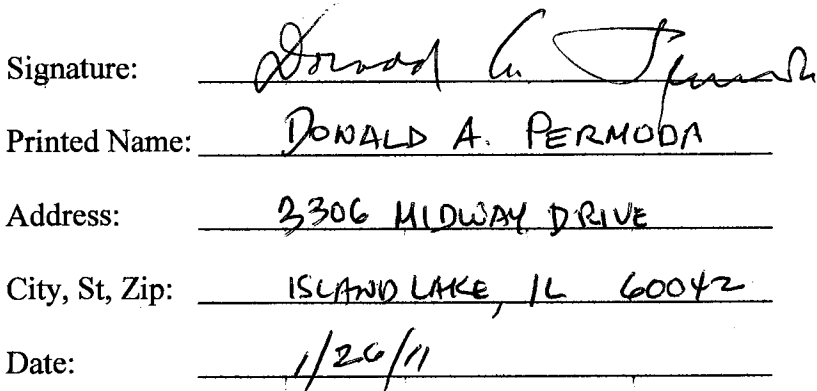 Signature: Donald A. Permoda
Printed Name: DONALD A. PERMODA
Address: 3306 MIDWAY DRIVE
City, St, Zip: ISLAND LAKE, IL 60042
Date: 1/26/11